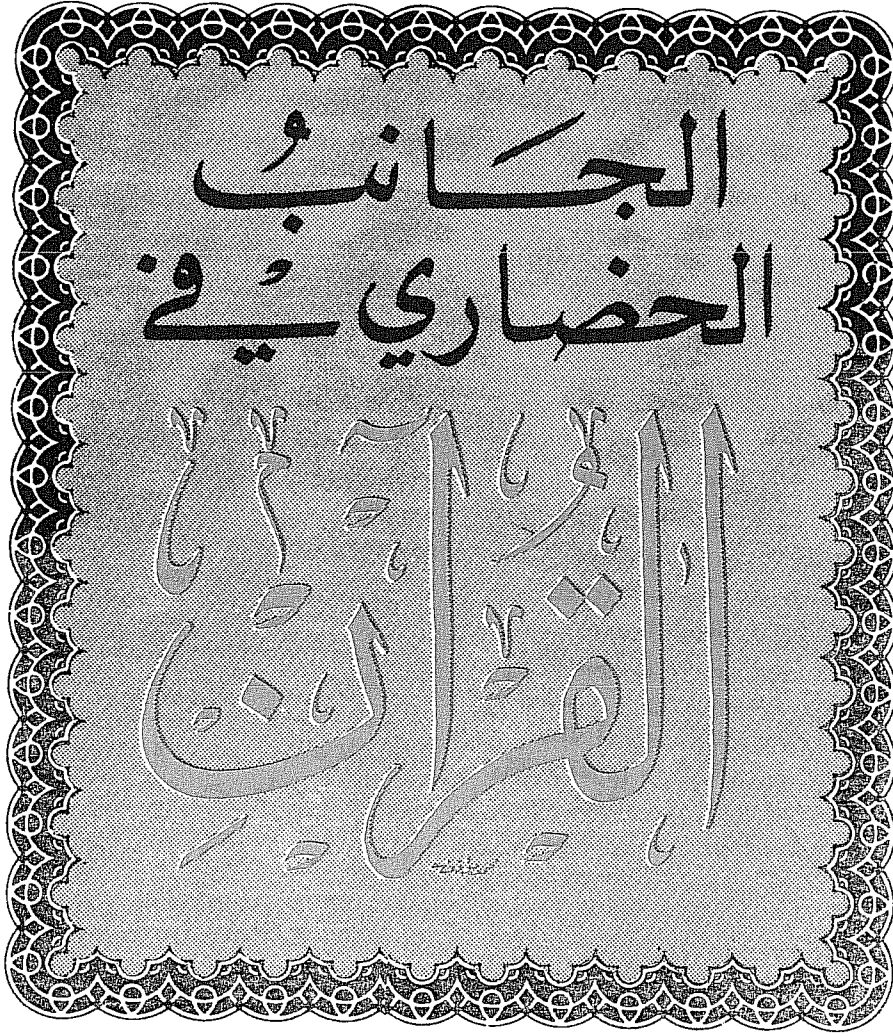 الجَانبُ
الحضاري في
القُرْآنِ